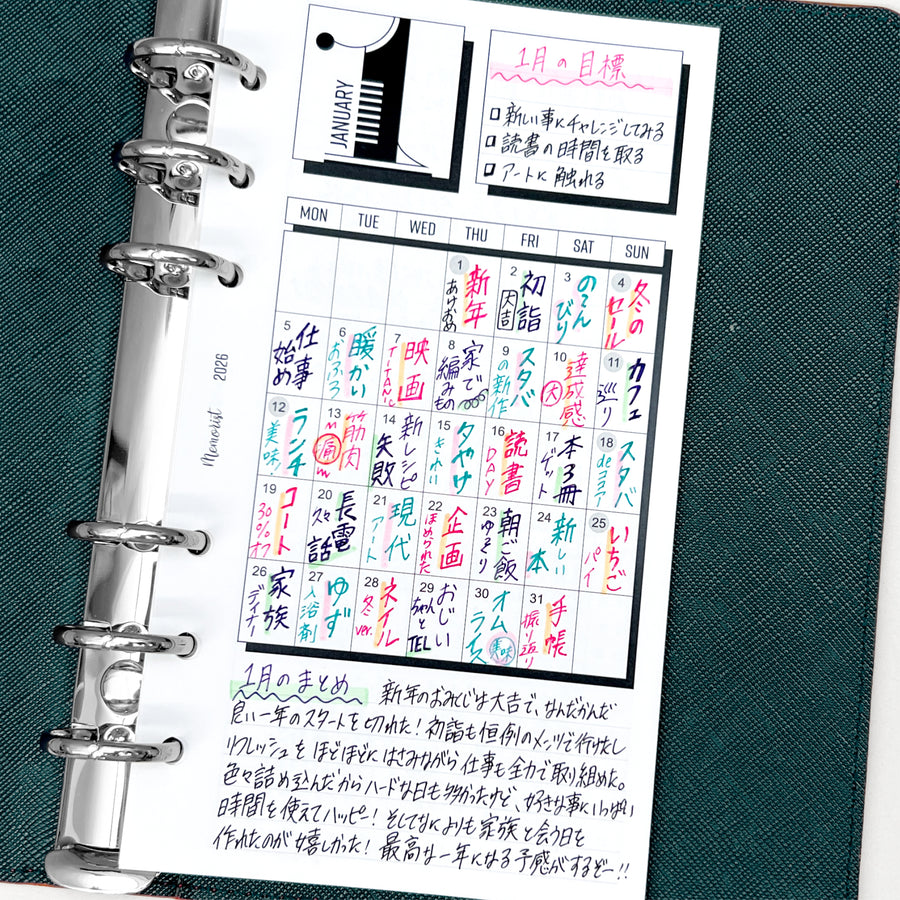 JANUARY
1月の目標
新しい事にチャレンジしてみる
読書の時間を取る
アートに触れる
MON TUE WED THU FRI SAT SUN
1 新年 あけおめ
2 初詣 大吉
3 のんびり
4 冬のセール
5 仕事始め
6 暖かい おふろ
7 映画 TITANIC
8 家で編みもの
9 スタバの新作
10 達成感 大
11 カフェ巡り
12 ランチ 美味!
13 筋肉痛
14 新レシピ 失敗
15 夕やけ きれい
16 読書 DAY
17 本3冊 ゲット
18 スタバ deココア
19 コート 30%オフ
20 長電話 久々
21 現代アート
22 企画 ほめられた
23 朝ご飯 ゆっくり
24 新しい本
25 いちごパイ
26 家族 ディナー
27 ゆず 入浴剤
28 ネイル 冬ver.
29 おじいちゃんとTEL
30 オムライス 美味
31 手帳 振り返り
Memorist 2026
1月のまとめ 新年のおみくじは大吉で、なんだかんだ
良い一年のスタートを切れた!初詣も恒例のメンツで行けたし
リフレッシュをほどほどにはさみながら仕事も全力で取り組めた。
色々詰め込んだからハードな日も多かったけど、好きな事にいっぱい
時間を使えてハッピー!そしてなによりも家族と会う日を
作れたのが嬉しかった!最高な一年になる予感がするぞー!!